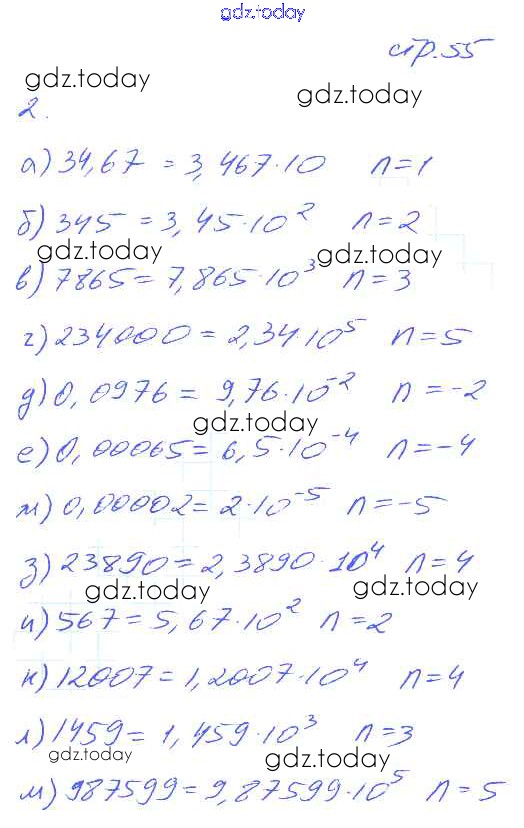 gdz.today
стр.55
gdz.today gdz.today
2.
а) 34,67 = 3,467·10 n=1
б) 345 = 3,45·10² n=2
gdz.today gdz.today
в) 7865 = 7,865·10³ n=3
г) 234000 = 2,34·10⁵ n=5
д) 0,0976 = 9,76·10⁻² n=-2
gdz.today
е) 0,00065 = 6,5·10⁻⁴ n=-4
ж) 0,00002 = 2·10⁻⁵ n=-5
з) 23890 = 2,3890·10⁴ n=4
gdz.today gdz.today
и) 567 = 5,67·10² n=2
к) 12007 = 1,2007·10⁴ n=4
л) 1459 = 1,459·10³ n=3
gdz.today gdz.today
м) 987599 = 9,87599·10⁵ n=5